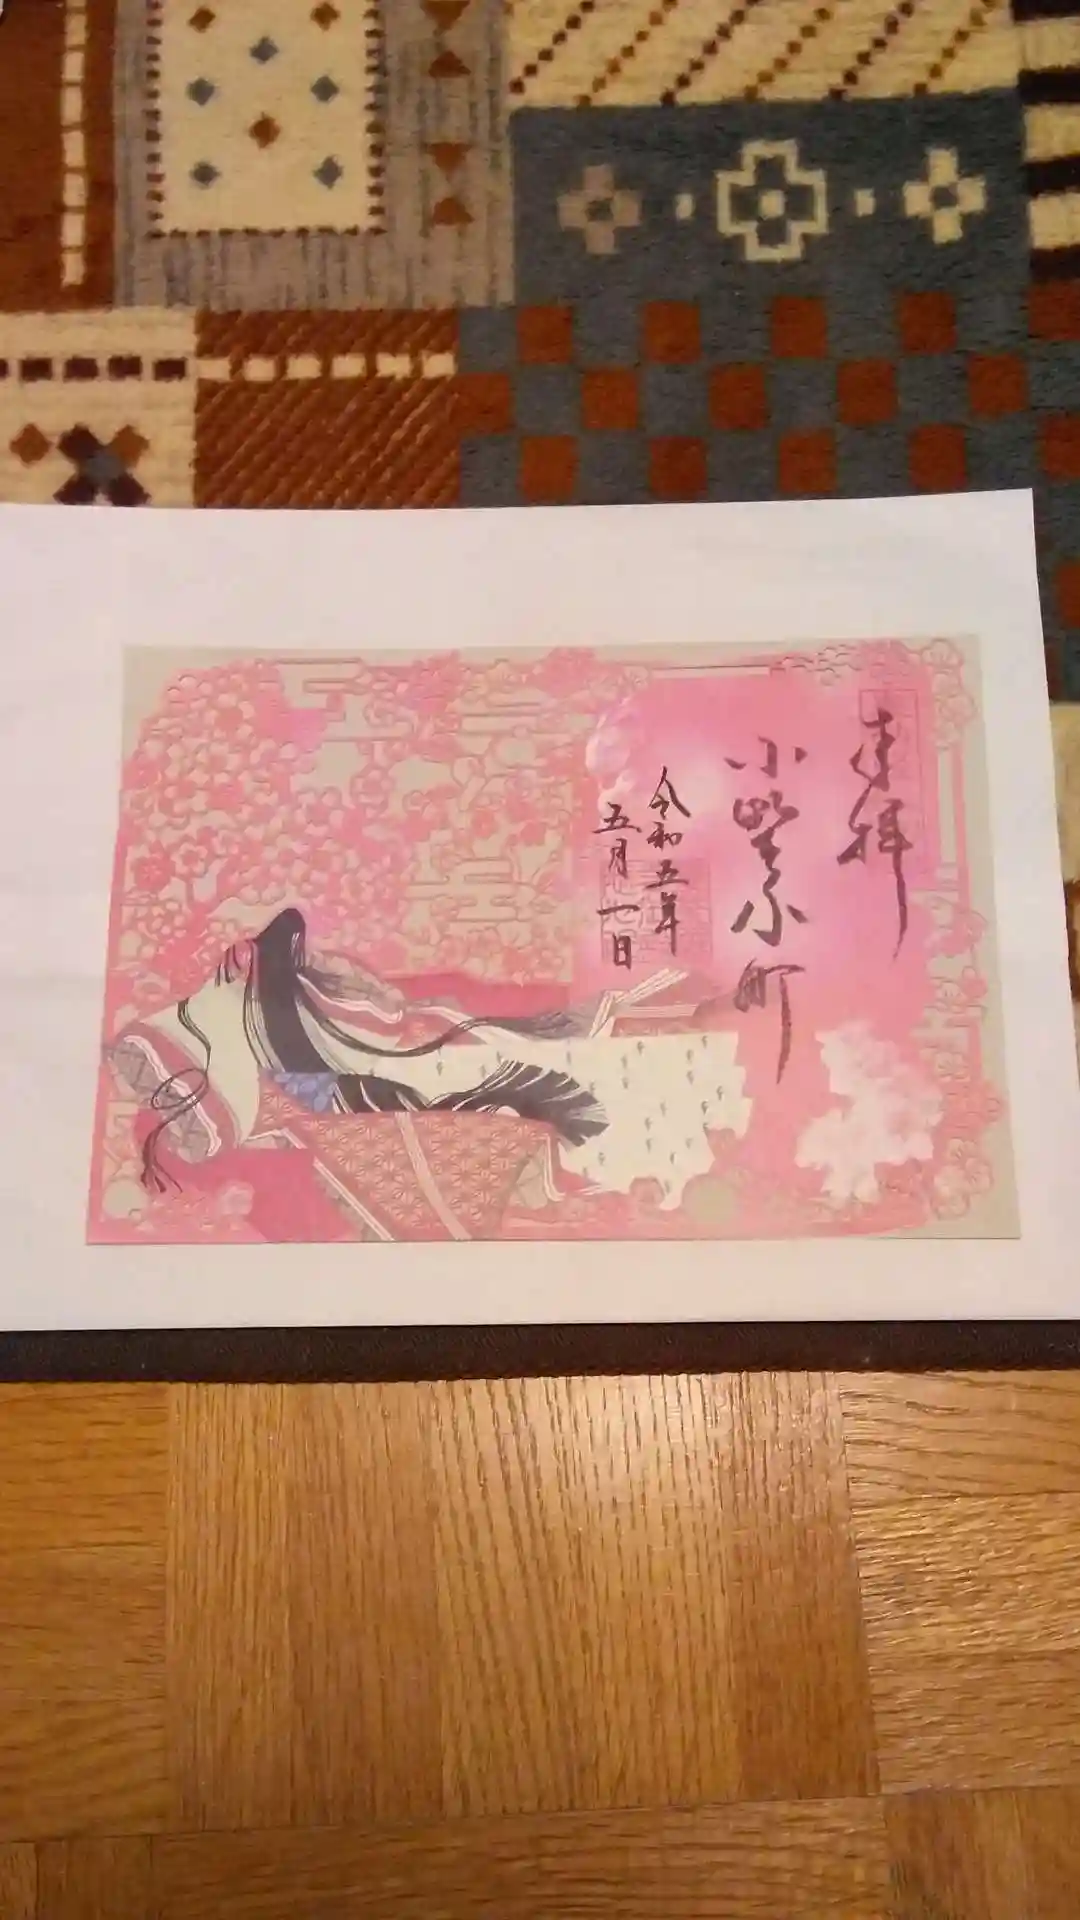 奉拝
小野小町
令和五年
五月一日